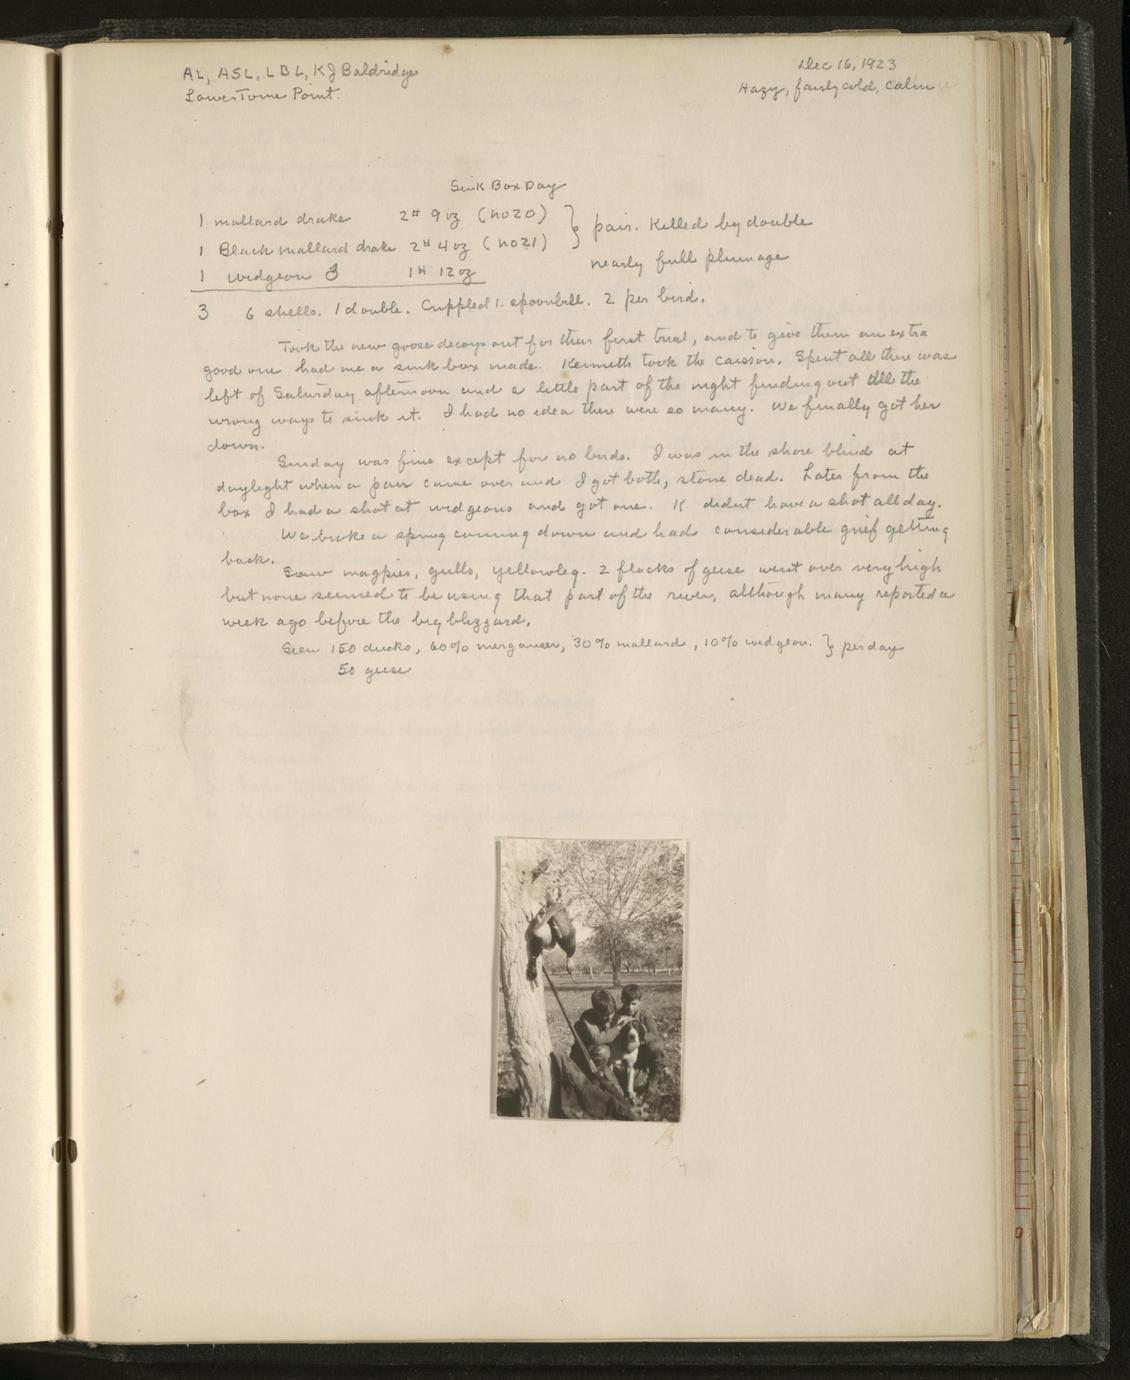 AL, ASL, LBL, KJ Baldridge
Dec 16, 1923
Lower Tome Point.
Hazy, fairly cold, calm
Sink Box Day
1 mallard drake 2# 9 oz (no 20) } pair. Killed by double
1 Black mallard drake 2# 4 oz (no 21)
1 widgeon ♂ 1# 12 oz nearly full plumage
3 6 shells. 1 double. Crippled 1 spoonbill. 2 per bird.
Took the new goose decoys out for their first trial, and to give them an extra
good one had me a sink box made. Kenneth took the caisson. Spent all there was
left of Saturday afternoon and a little part of the night finding out all the
wrong ways to sink it. I had no idea there were so many. We finally got her
down.
Sunday was fine except for no birds. I was in the shore blind at
daylight when a pair came over and I got both, stone dead. Later from the
box I had a shot at widgeons and got one. K. didnt have a shot all day.
We broke a spring coming down and had considerable grief getting
back.
Saw magpies, gulls, yellowleg. 2 flocks of geese went over very high
but none seemed to be using that part of the river, although many reported a
week ago before the big blizzard.
Seen 150 ducks, 60% merganser, 30% mallard, 10% widgeon. } per day
50 geese